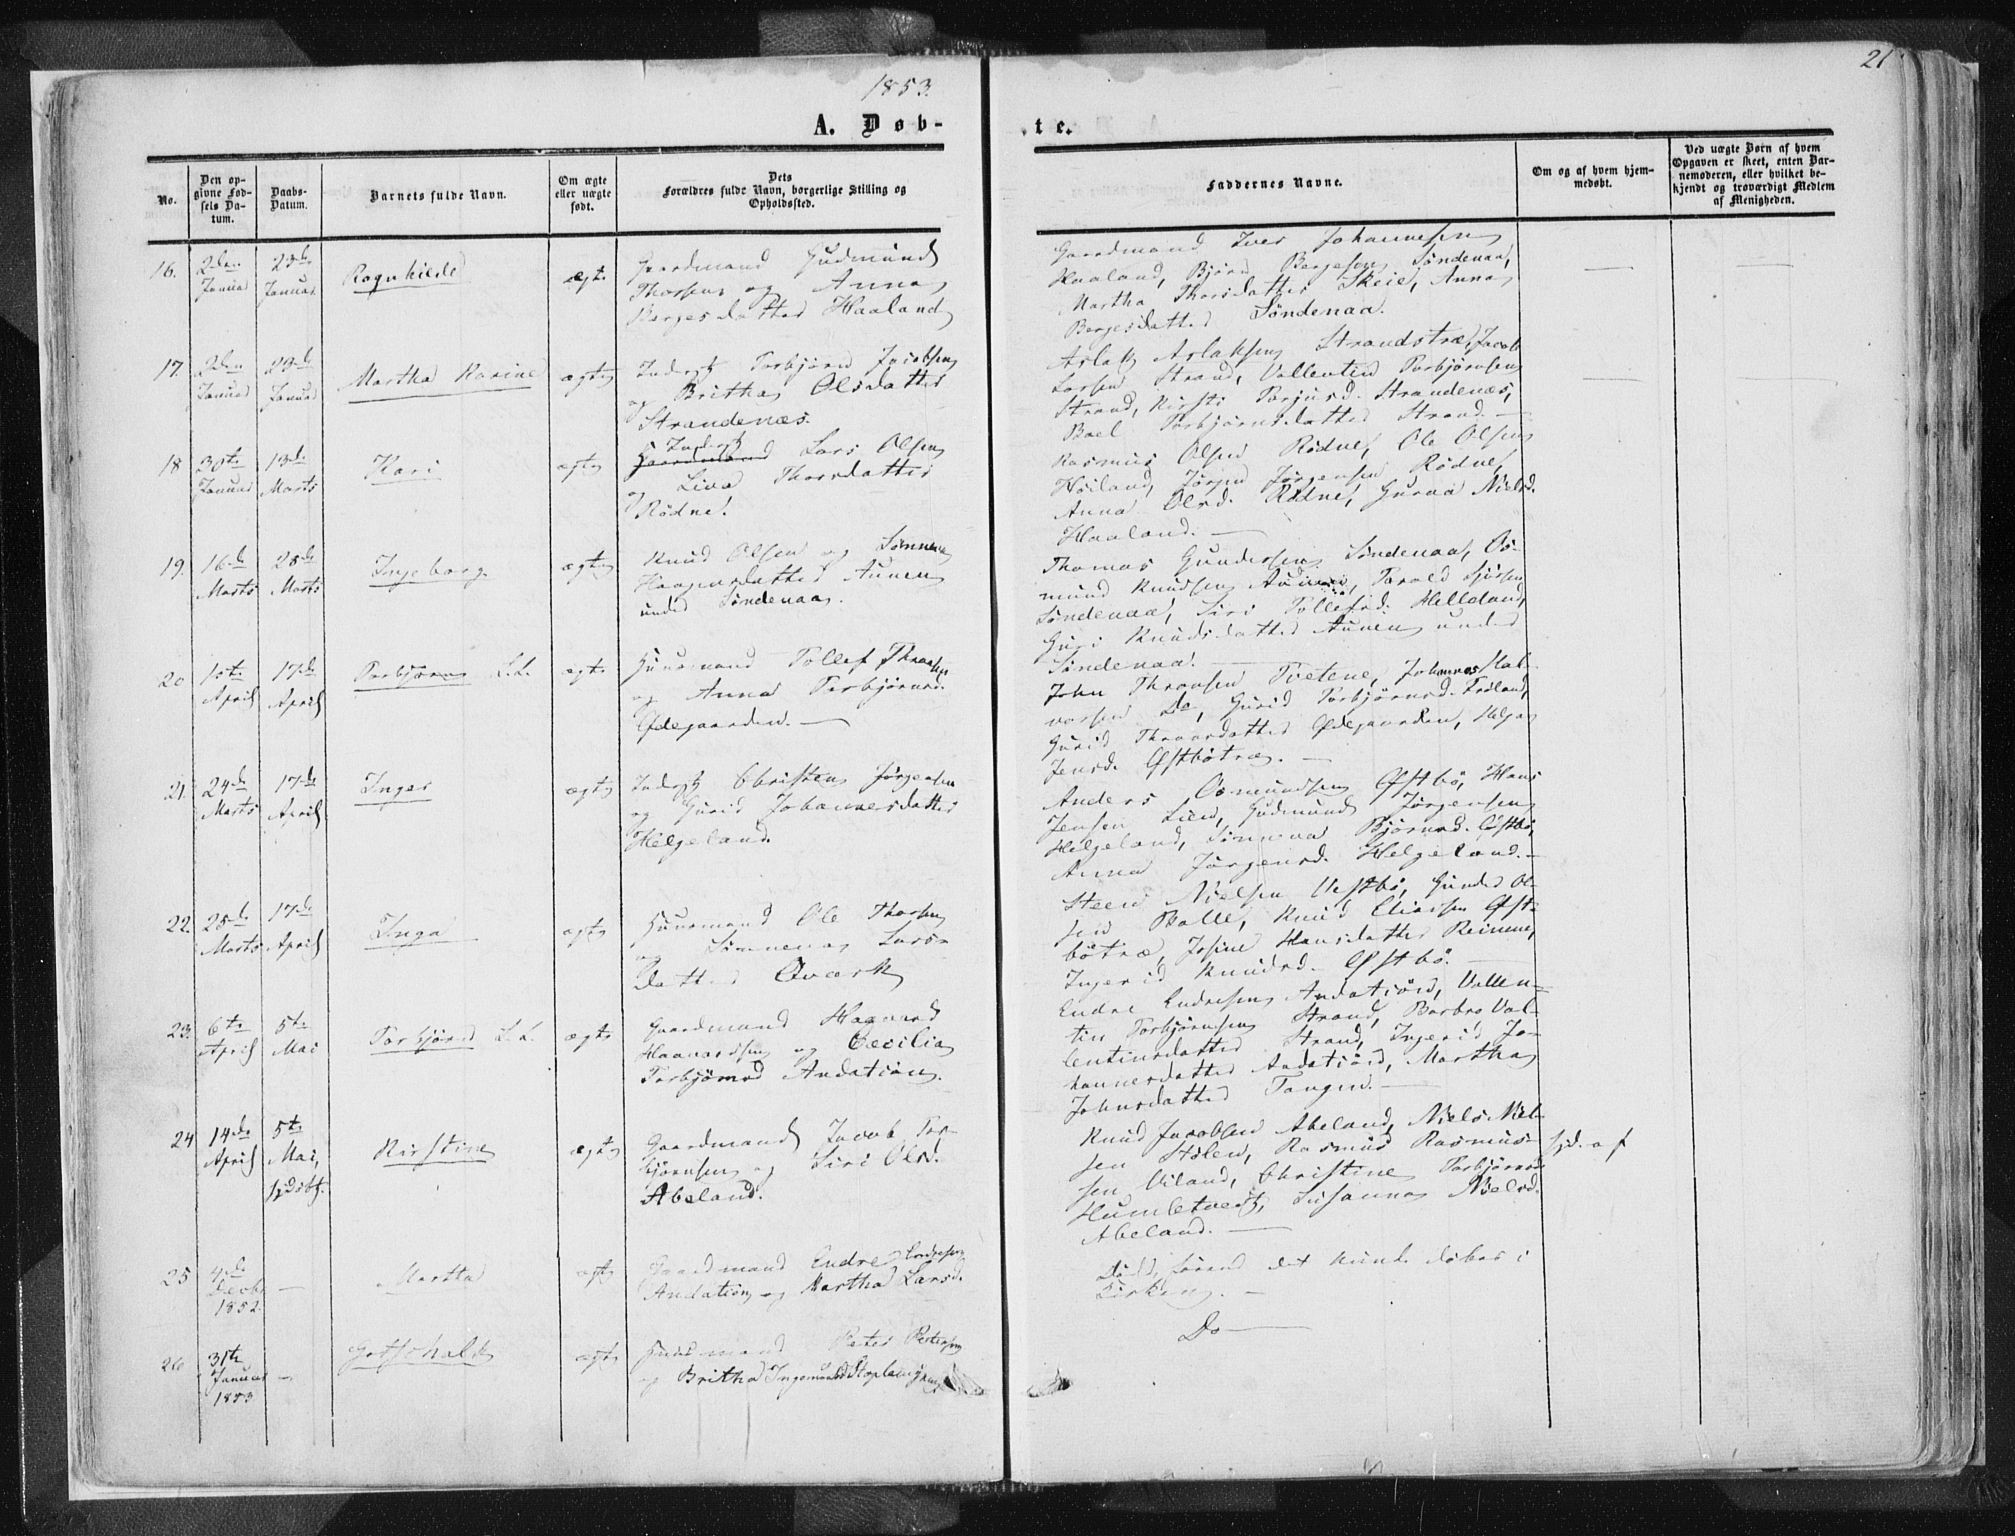 1853.
21
A. Døb-
te.
No.
Den op-
givne Fød-
sels Da-
tum.
Daabs-
Datum.
Barnets fulde Navn.
Om ægte
eller uægte
født.
Dets
Forældres fulde Navn, borgerlige Stilling og
Opholdssted.
Faddernes Navne.
Om og af hvem hjem-
medøbt.
Ved uægte Børn af hvem
Opgaven er skeet, enten Bar-
nemoderen, eller hvilket be-
kjendt og troværdigt Medlem
af Menigheden.
16.
2den
Januar
23de
Januar
Ragnhilde
ægte
Gaardmand Gudmund
Thorsen og Anna
Bergesdatter Haaland
Gaardmand Iver Johannesen
Haaland, Bjørn Bergesen Søndenaa,
Martha Thorsdatter Skeie, Anna
Bergesdatter Søndenaa.
17.
2den
Januar
23de
Januar
Martha Karine
ægte
Inderst Torbjørn Jacobsen
og Britha Olsdatter
Strandenæs.
Aslak Aslaksen Strandstræ, Jacob
Larsen Strand, Vallentin Torbjørnsen
Strand, Kirsti Torjusd. Strandenæs,
Boel Torbjørnsdatter Strand.
18
30te
Januar
13de
Marts
Kari
ægte
Inderst
Gaardmand Lars Olsen
og Liva Thorsdatter
Rødne.
Rasmus Olsen Rødne, Ole Olsen
Høiland, Jørgen Jørgensen Rødne,
Anna Olsd. Rødne, Gurua Nielsd.
Haaland.
19.
16de
Marts
28de
Marts
Ingeborg
ægte
Knud Olsen og Sønneva
Haagensdatter Aunen
under Søndenaa.
Thomas Gundersen Søndenaa, Os-
mund Knudsen Aunen, Torald Sjursen
Søndenaa, Siri Tollefsd. Helleland,
Guri Knudsdatter Aunen under
Søndenaa.
20
1ste
April
17de
April
Torbjørn L.L.
ægte
Huusmand Tollef Thraasen
og Anna Torbjørnsd.
Ødegaarden.
John Thraasen Tvetene, Johannes Hal-
vorsen Do, Gurid Torbjørnsd. Frøland,
Gurid Thraasdatter Ødegaarden, Helga
Jensd. Østbøtræ.
21.
24de
Marts
17de
April
Inger
ægte
Inderst Christen Jørgensen
og Gurid Johannesdatter
Helgeland.
Anders Osmundsen Østbø, Hans
Jensen Lien, Gudmund Jørgensen
Helgeland, Sønneva Bjørnsd. Østbø,
Anna Jørgensd. Helgeland.
22.
25de
Marts
17de
April
Inga
ægte
Huusmand Ole Thorsen
og Sønneva Lars-
datter Qværk
Steen Nielsen Vestbø, Gunder Ol-
sen Balle, Knud Eliasen Øst-
bøtræ, Josine Hansdatter Reinene,
Ingerid Knudsd. Østbø.
23.
6te
April
5te
Mai
Torbjørn L.L.
ægte
Gaardmand Haavard
Haavardsen og Cecilia
Torbjørnsd Andationg.
Endre Endresen Andatiød, Vallen-
tin Torbjørnsen Strand, Barbro Val-
lentinsdatter Strand, Ingerid Jo-
hannesdatter Andatiød, Martha
Johnsdatter Tangen.
24
14de
April
5te
Mai,
hjdøbt.
Kirstine
ægte
Gaardmand Jacob Tor-
bjørnsen og Siri Olsd.
Abeland.
Knud Jacobsen Abeland, Niels Niel-
sen Stølen, Rasmus Rasmus-
sen Uiland, Christine Torbjørnsd
Humletvedt, Susanna Nielsd.
Abeland.
hjd. af
25
4de
Decbr
1852.
Martha
ægte
Gaardmand Endre Endresen
Andationg og Martha Larsd.
Død, førend det kunde døbes i
Kirken.
26
31te
Januar
1853
Gotschalk
ægte
Huusmand Peter Pedersen
og Britha Ingemundsd
Do